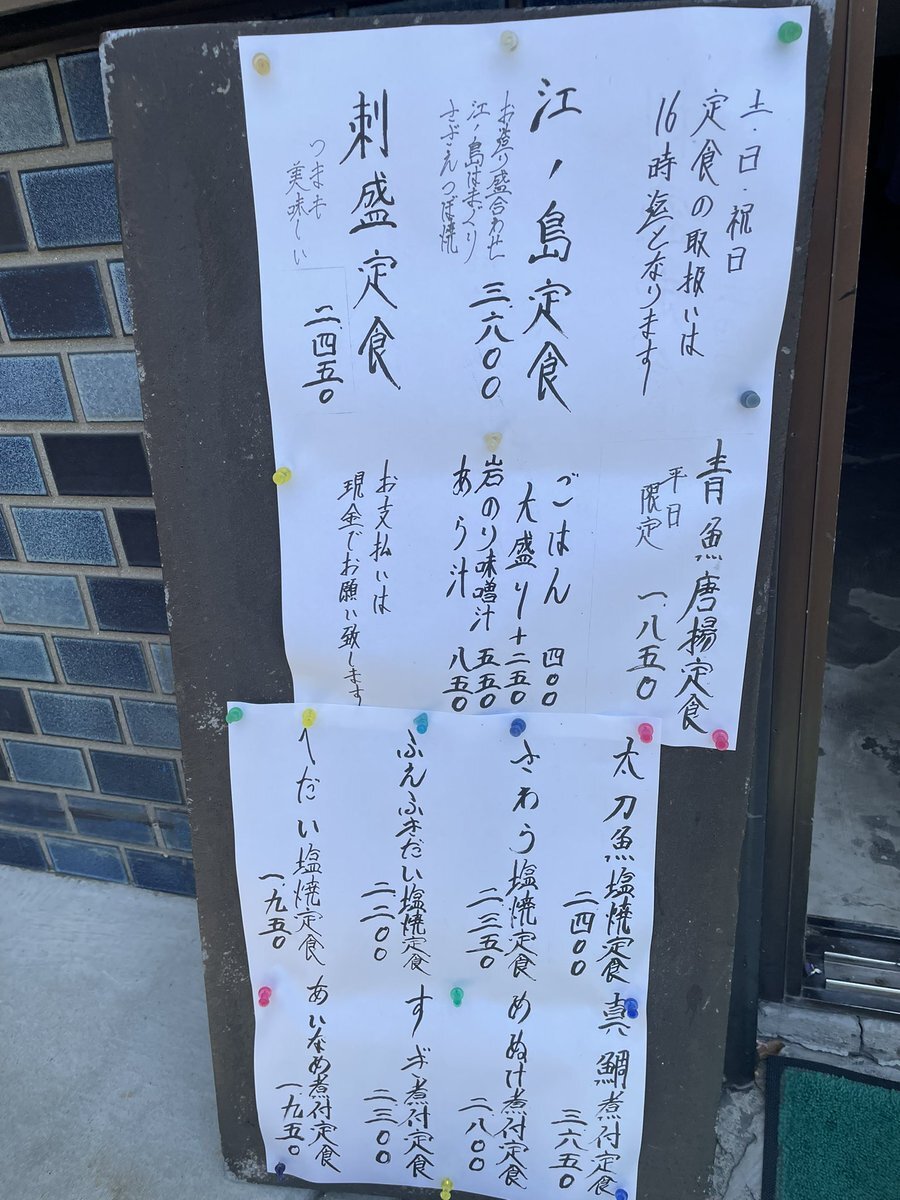 土・日・祝日
定食の取扱いは
16時迄となります
江ノ島定食
お造り盛合わせ
江ノ島はまぐり
さざえつぼ焼
三、六〇〇
刺盛定食
つまも
美味しい
二、四五〇
青魚唐揚定食
平日
限定
一、八五〇
ごはん 四〇〇
大盛り+二五〇
岩のり味噌汁 五五〇
あら汁 八五〇
お支払いは
現金でお願い致します
太刀魚塩焼定食
二四〇〇
さわら塩焼定食
二、三五〇
ふえふきだい塩焼定食
二、二〇〇
へだい塩焼定食
一、九五〇
真鯛煮付定食
三、六五〇
めぬけ煮付定食
二、八〇〇
すずき煮付定食
二、三〇〇
あいなめ煮付定食
一、九五〇